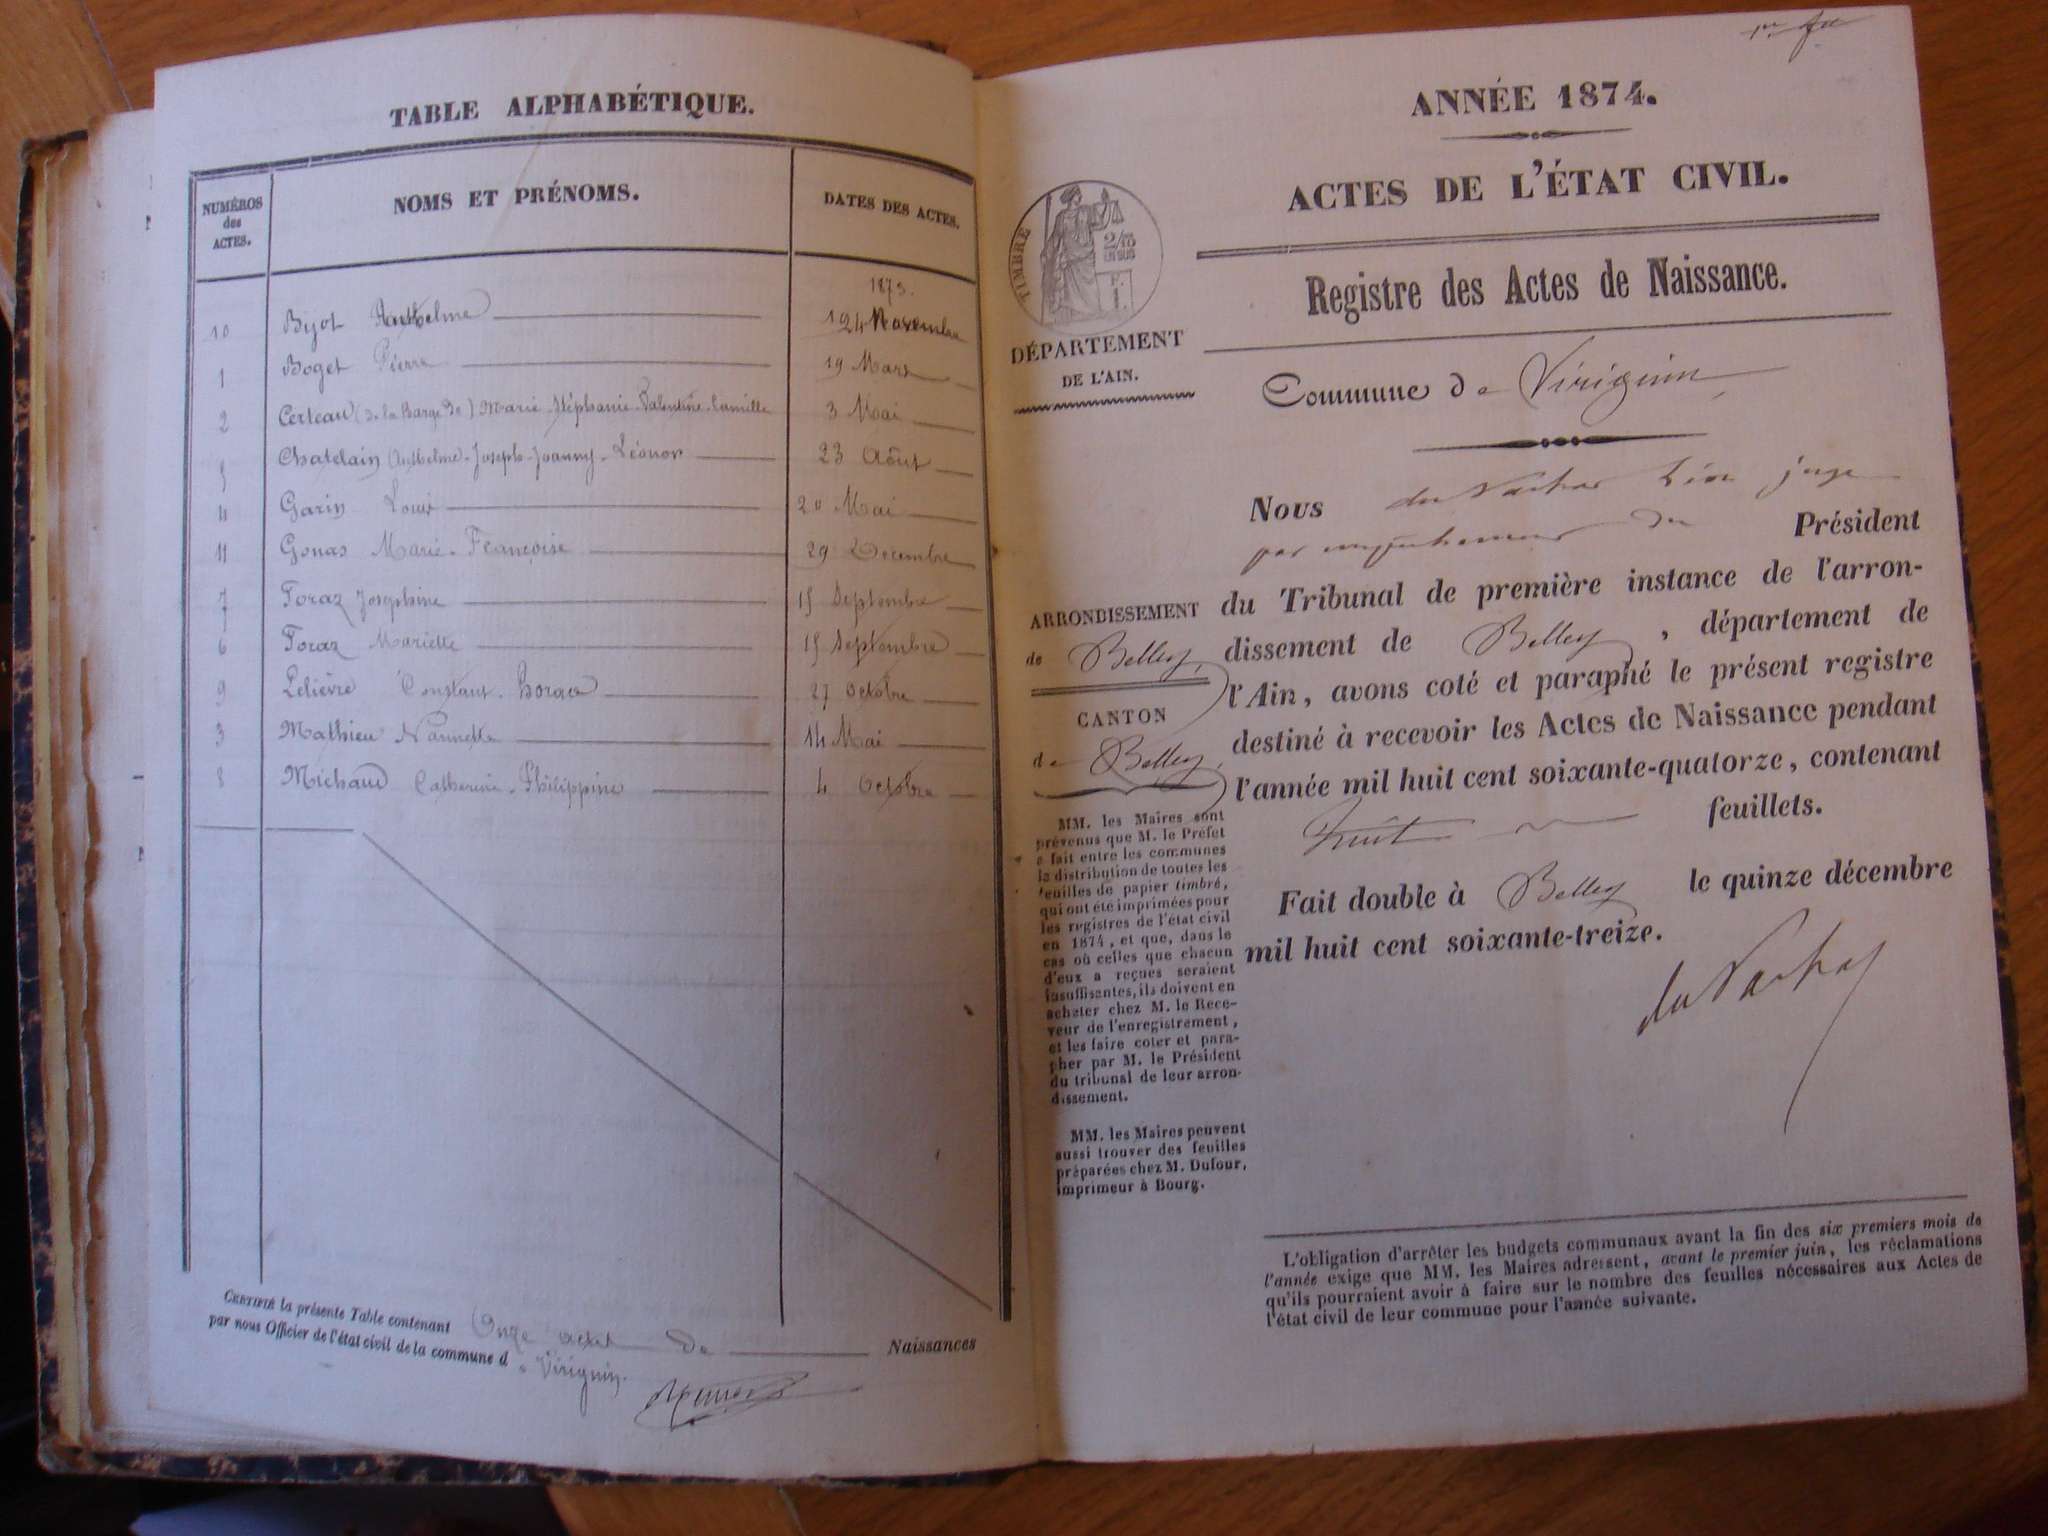 TABLE ALPHABÉTIQUE.
NUMÉROS des ACTES. NOMS ET PRÉNOMS. DATES DES ACTES.
1873.
10 Bijot Anthelme 24 Novembre
1 Boget Pierre 19 Mars
2 Certeau (de la Barge de) Marie-Stéphanie-Valentine-Camille 3 Mai
5 Chatelain Anthelme-Joseph-Joanny-Léonor 23 Août
4 Garin Louis 20 Mai
11 Gonas Marie-Françoise 29 Décembre
7 Joséphine 15 Septembre
6 Mariette 15 Septembre
9 Lelièvre Constant-Horace 27 Octobre
3 Mathieu Nannette 14 Mai
8 Michaud Catherine-Philippine 4 Octobre
CERTIFIÉ la présente Table contenant Onze actes de Naissances
par nous Officier de l'état civil de la commune de Virignin.
ANNÉE 1874.
ACTES DE L'ÉTAT CIVIL.
TIMBRE
2/10
EN SUS
Registre des Actes de Naissance.
DÉPARTEMENT
DE L'AIN.
Commune de Virignin
Nous du Nachas Léon juge
par empêchement du Président
du Tribunal de première instance de l'arron-
dissement de Belley, département de
l'Ain, avons coté et paraphé le présent registre
destiné à recevoir les Actes de Naissance pendant
l'année mil huit cent soixante-quatorze, contenant
huit feuillets.
Fait double à Belley le quinze décembre
mil huit cent soixante-treize.
ARRONDISSEMENT
de Belley,
CANTON
de Belley,
MM. les Maires sont
prévenus que M. le Préfet
a fait entre les communes
la distribution de toutes les
feuilles de papier timbré,
qui ont été imprimées pour
les registres de l'état civil
en 1874, et que, dans le
cas où celles que chacun
d'eux a reçues seraient
insuffisantes, ils doivent en
acheter chez M. le Rece-
veur de l'enregistrement,
et les faire coter et para-
pher par M. le Président
du tribunal de leur arron-
dissement.
MM. les Maires peuvent
aussi trouver des feuilles
préparées chez M. Dufour,
imprimeur à Bourg.
L'obligation d'arrêter les budgets communaux avant la fin des six premiers mois de
l'année exige que MM. les Maires adressent, avant le premier juin, les réclamations
qu'ils pourraient avoir à faire sur le nombre des feuilles nécessaires aux Actes de
l'état civil de leur commune pour l'année suivante.